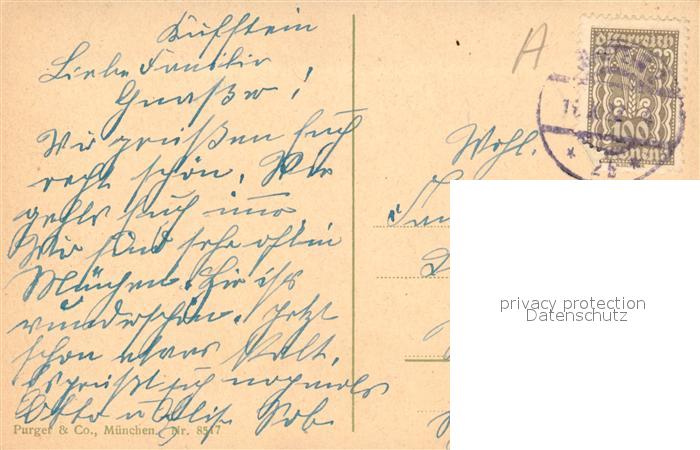 Kufstein
Liebe Familie
Wir grüßen Euch
recht schön. Wie
gehts Euch immer
Wir sind sehr oft in
München. Hier ist
wunderschön. Jetzt
schon etwas kalt.
Es grüßt Euch nochmals
Otto u
Purger & Co., München. Nr. 8517
A
100
2b
Wohl.
privacy protection
Datenschutz